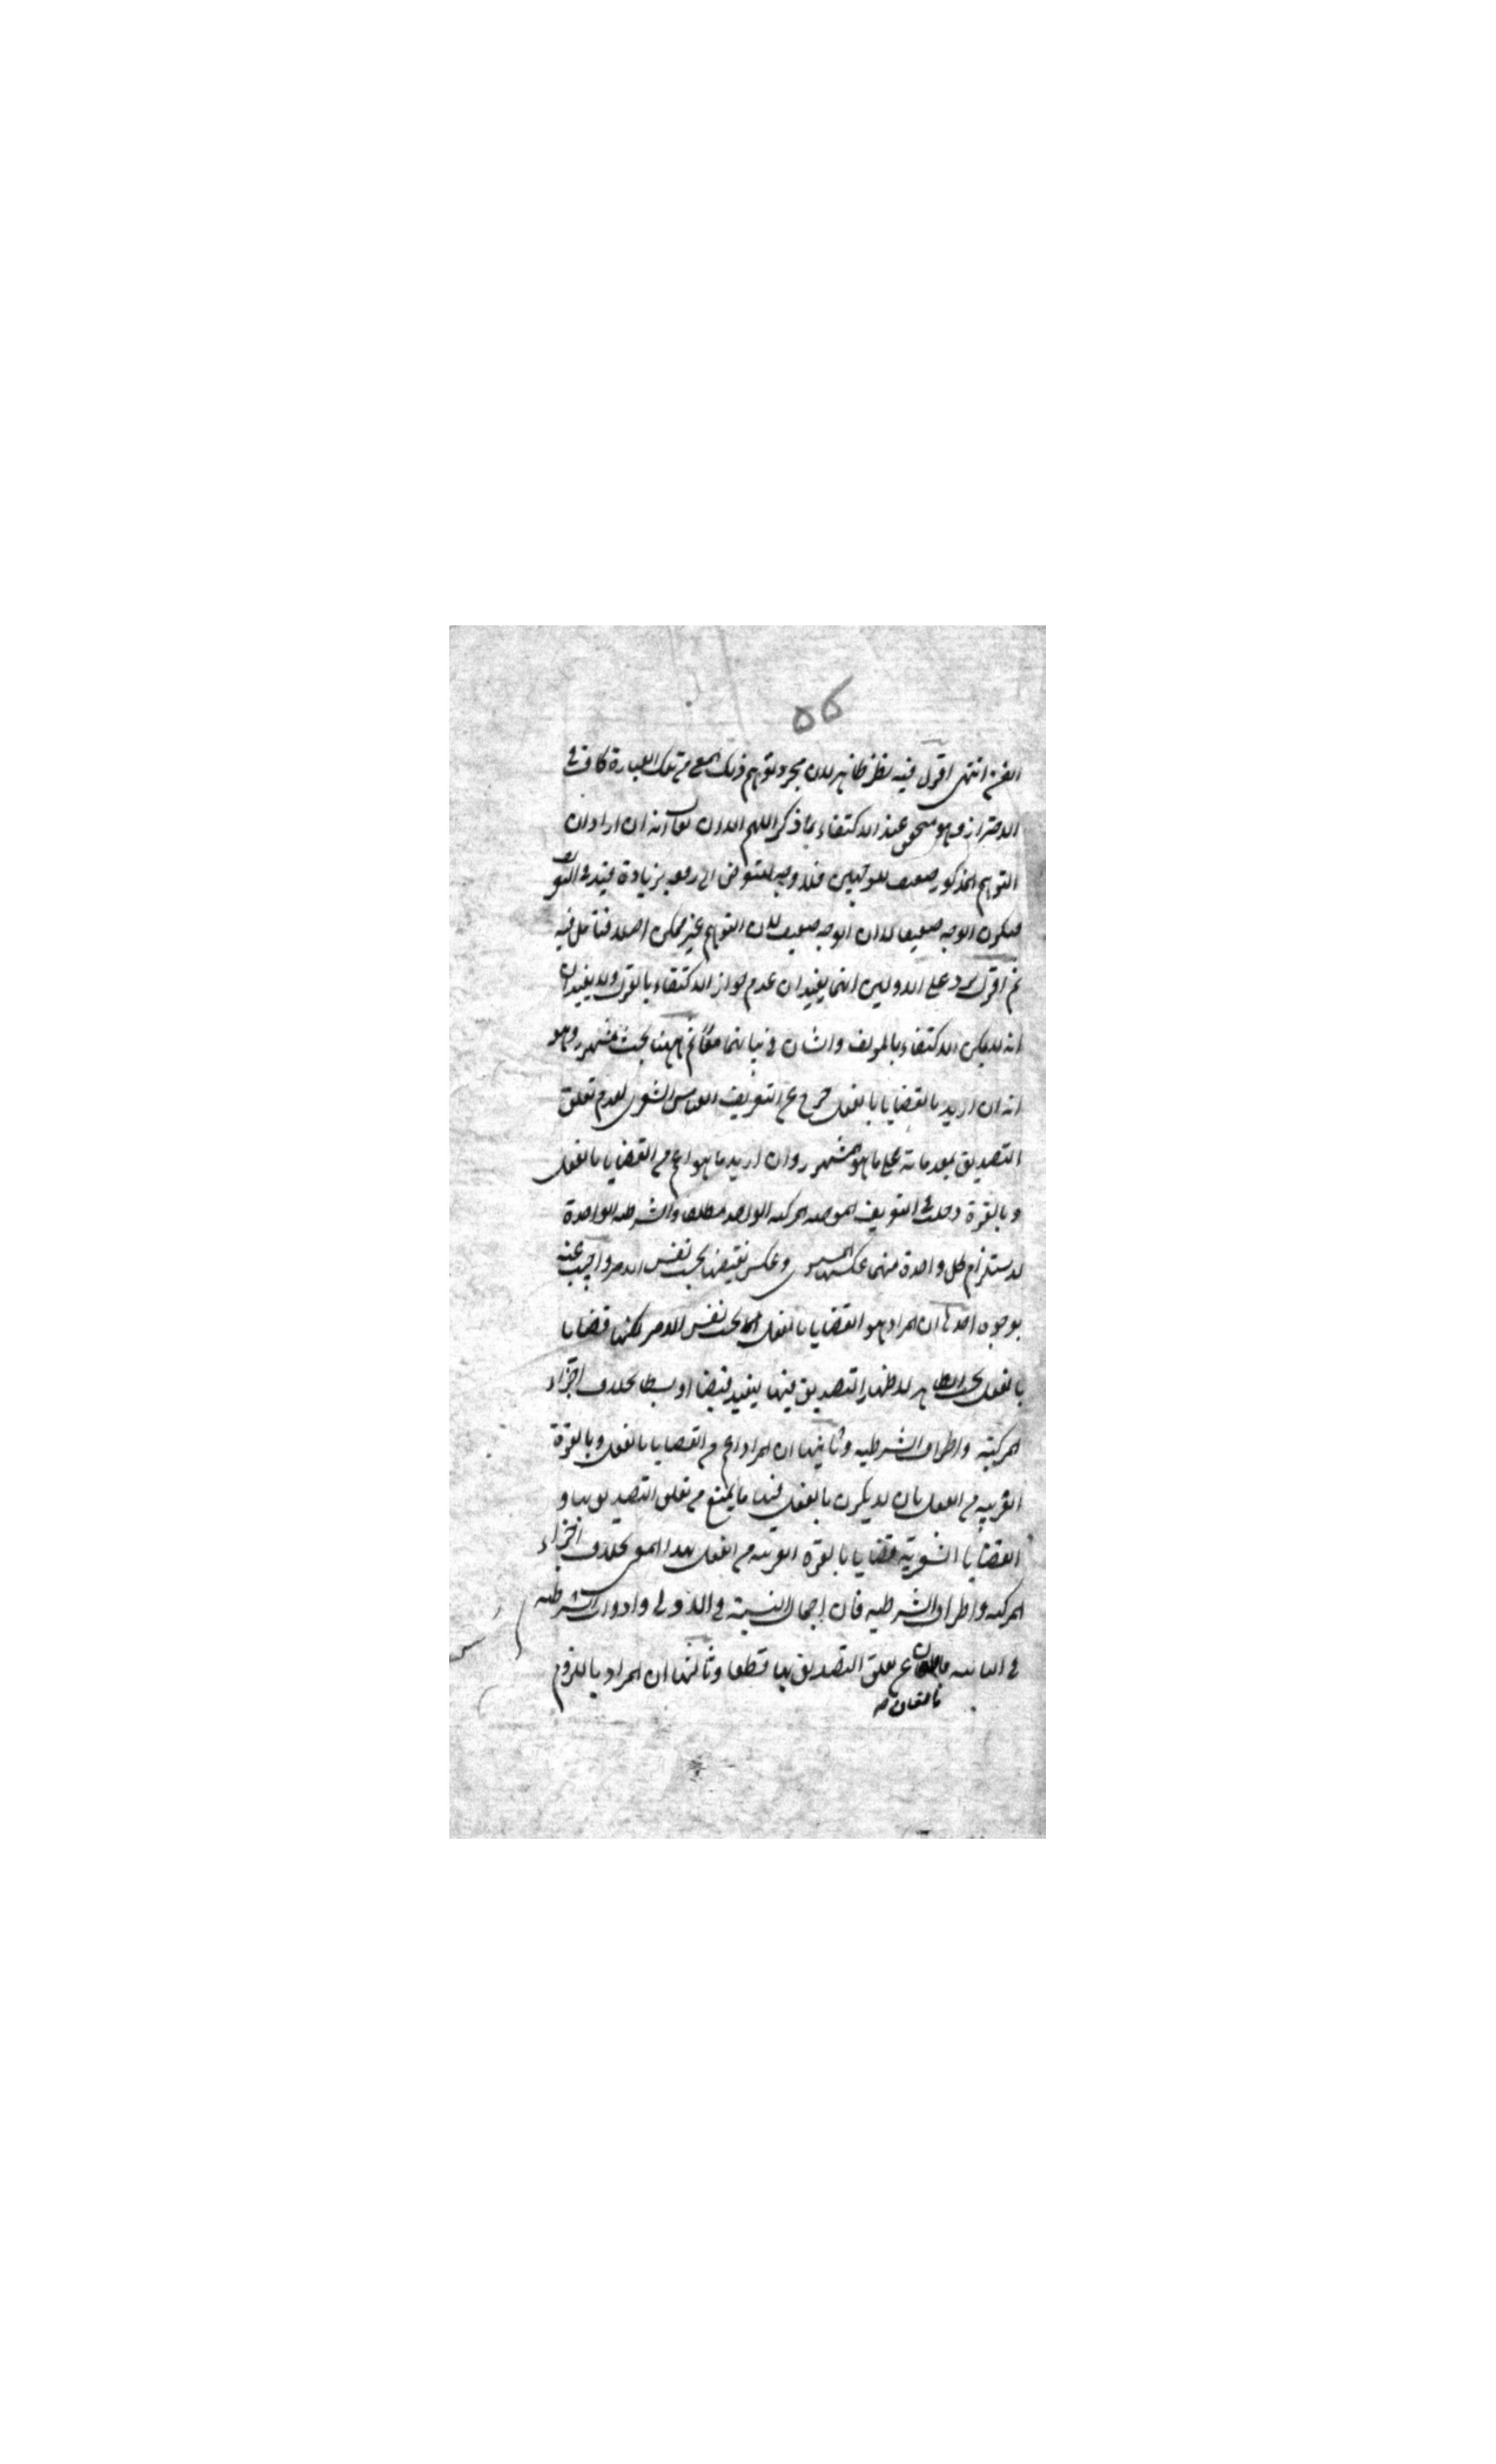 ٥٥
الفن انتهى اقول فيه نظر ظاهر لان مجرد توهم ذلك المعنى من تلك العبارة كاف في
الاحتراز وهو متحقق عند الاكتفاء بما ذكر اللهم الا ان يقال انه ان اراد ان
التوهم المذكور ضعيف فلا وجه الى رفعه بزيادة قيد في التعريف
فيكون الوجه ضعيفا لا ان الوجه ضعيف لان التوهم غير ممكن اصلا فتأمل فيه
ثم اقول يرد على الاولين انما يفيدان عدم جواز الاكتفاء بالقول ولا يفيدان
انه لا يمكن الاكتفاء بالمؤلف والشأن في بيانهما ثم ههنا بحث مشهور وهو
انه ان اريد بالقضايا بالفعل خرج عن التعريف القياس الشعري لعدم تعلق
التصديق بمقدماته على ما هو المشهور وان اريد ما هو اعم من القضايا بالفعل
وبالقوة دخلت في التعريف الموجهة المركبة الواحدة مطلقا والشرطية الواحدة
لاستلزام كل واحدة منهما عكسها المستوي وعكس نقيضها بحسب نفس الامر واجيب عنه
بوجوه احدها ان المراد هو القضايا بالفعل بحسب نفس الامر لكنها قضايا
بالفعل بحسب الظاهر لاظهار التصديق فيها ليفيد قبضا او بسطا بخلاف اجزاء
المركبة واطراف الشرطية وثانيها ان المراد اعم من القضايا بالفعل وبالقوة
القريبة من الفعل بان لا يكون بالفعل فيها ما يمنع من تعلق التصديق بها و
القضايا الشعرية قضايا بالقوة القريبة من الفعل بهذا المعنى بخلاف اجزاء
المركبة واطراف الشرطية فان اجمال النسبة في الاولى وادوات الشرطية
في الثانية عن تعلق التصديق بها قطعا وثالثها ان المراد باللزوم